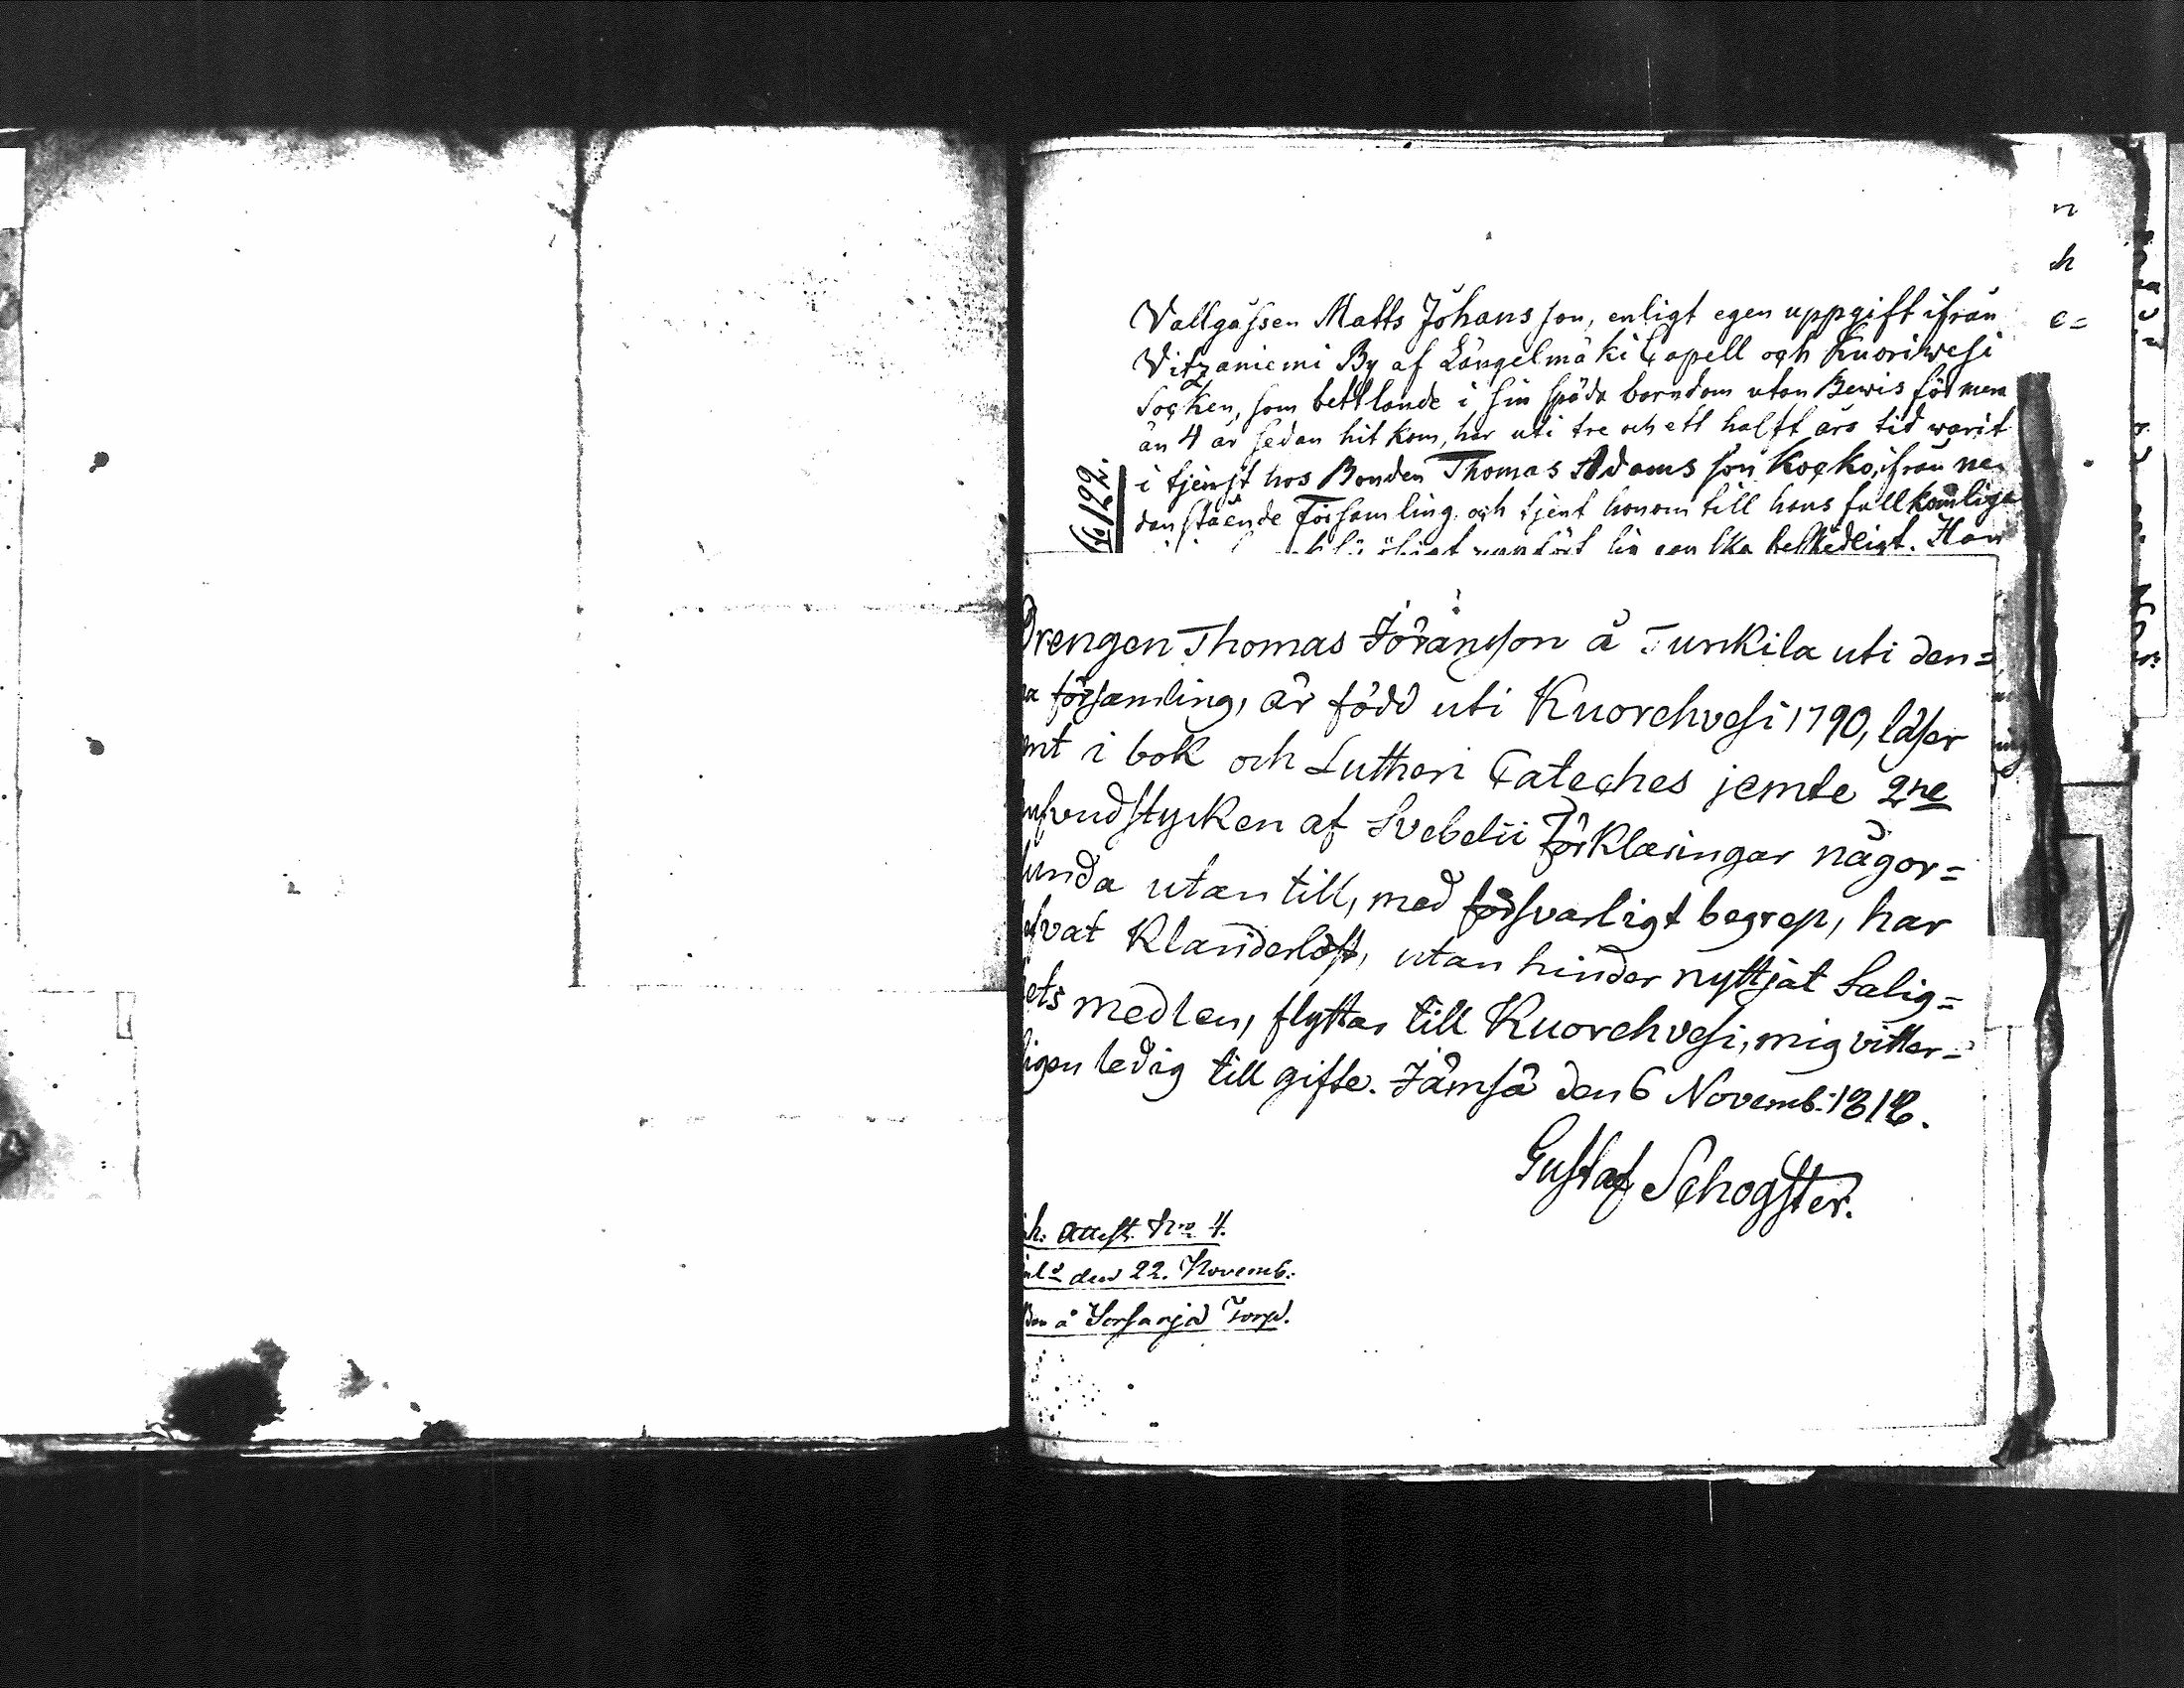 Vallgåssen Matts Johansson, enligt egen uppgift ifrån
Vitzaniemi By af Längelmäki Capell och Kuoriwesi
Socken, som bettlande i sin späda barndom utan Bewis för mera
än 4 år sedan hit kom, har uti tre och ett halft års tid warit
i tjenst hos Bonden Thomas Adamsson Kocko, ifrån ne-
danstående Församling och tjent honom till hans fullkomliga
beskedligt. Han
122.
Drengen Thomas Jöransson å Tunkila uti den=
na församling, är född uti Kuorehvesi 1790, läser
mt i bok och Lutheri Cateches jemte 2ne
hufvudstycken af Svebelii Förklaringar någor=
lunda utan till, med försvarligt begrep, har
efvat klanderlöst, utan hinder nyttjat Salig=
ets medlen, flyttar till Kuorehvesi, mig vitter=
ligen ledig till gifte. Jämsä den 6 Novemb: 1818.
Gustaf Schogster.
h. Attest. Nro 4.
den 22. Novemb:
å Torp.
n
h
e=